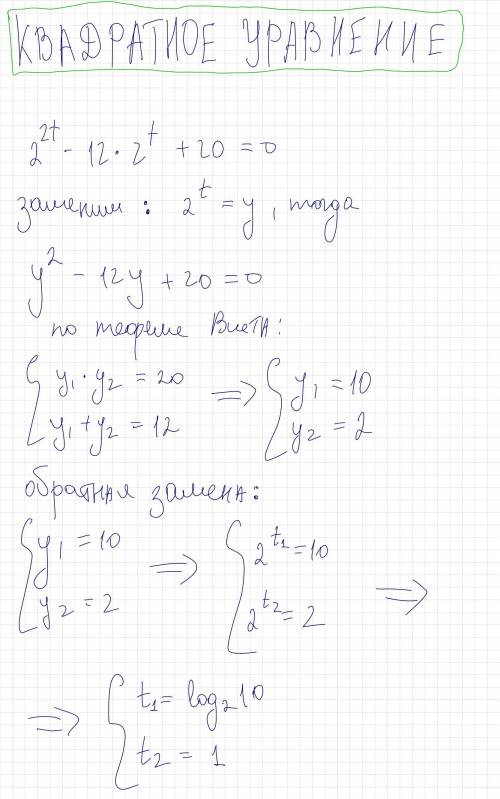 КВАДРАТНОЕ УРАВНЕНИЕ
2^{2t} - 12 · 2^t + 20 = 0
заменим : 2^t = y , тогда
y^2 - 12y + 20 = 0
по теореме Виета:
{ y₁ · y₂ = 20 ⇒ { y₁ = 10
y₁ + y₂ = 12 y₂ = 2
обратная замена:
{ y₁ = 10 ⇒ { 2^{t₁} = 10 ⇒
y₂ = 2 2^{t₂} = 2
⇒ { t₁ = log₂ 10
t₂ = 1